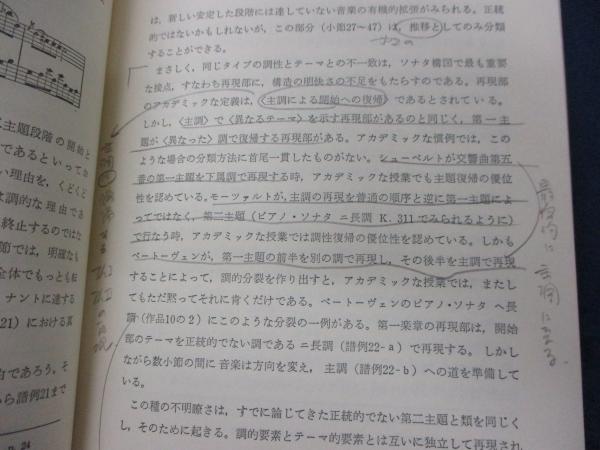 は，新しい安定した段階には達していない音楽の有機的拡張がみられる。正統
的ではないかもしれないが，この部分（小節27〜47）は，推移としてのみ分類
することができる。
まさしく，同じタイプの調性とテーマとの不一致は，ソナタ構図で最も重要
な接点，すなわち再現部に，構造の明快さの不足をもたらすのである。再現部
のアカデミックな定義は，〈主調による開始への復帰〉であるとされている。
しかし，〈主調〉で〈異なるテーマ〉を示す再現部があるのと同じく，第一主
題が〈異なった〉調で復帰する再現部がある。アカデミックな慣例では，この
ような場合の分類方法に首尾一貫したものがない。シューベルトが交響曲第五
番の第一主題を下属調で再現する時，アカデミックな授業でも主題復帰の優位
性を認めている。モーツァルトが，主調の再現を普通の順序と逆に第一主題によ
ってではなく，第二主題（ピアノ・ソナタ ニ長調 K. 311でみられるように）
で行なう時，アカデミックな授業では調性復帰の優位性を認めている。しかも
ベートーヴェンが，第一主題の前半を別の調で再現し，その後半を主調で再現
することによって，調的分裂を作り出すと，アカデミックな授業では，またし
てもただ黙ってそれに肯くだけである。ベートーヴェンのピアノ・ソナタ ヘ長
調（作品10の2）にこのような分裂の一例がある。第一楽章の再現部は，開始
部のテーマを正統的でない調である ニ長調（譜例22-a）で再現する。しかし
ながら数小節の間に 音楽は方向を変え， 主調（譜例22-b）への道を準備して
いる。
この種の不明瞭さは，すでに論じてきた正統的でない第二主題と類を同じく
し，そのために起きる。調的要素とテーマ的要素とは互いに独立して再現され
主題段階の開始と
であるといってお
い理由を，くどくど
は調的な理由であ
終止するのではな
節では，明確なも
全体でもっとも転
ナントに達する
21）における真
白であろう。そ
ら譜例21まで
24